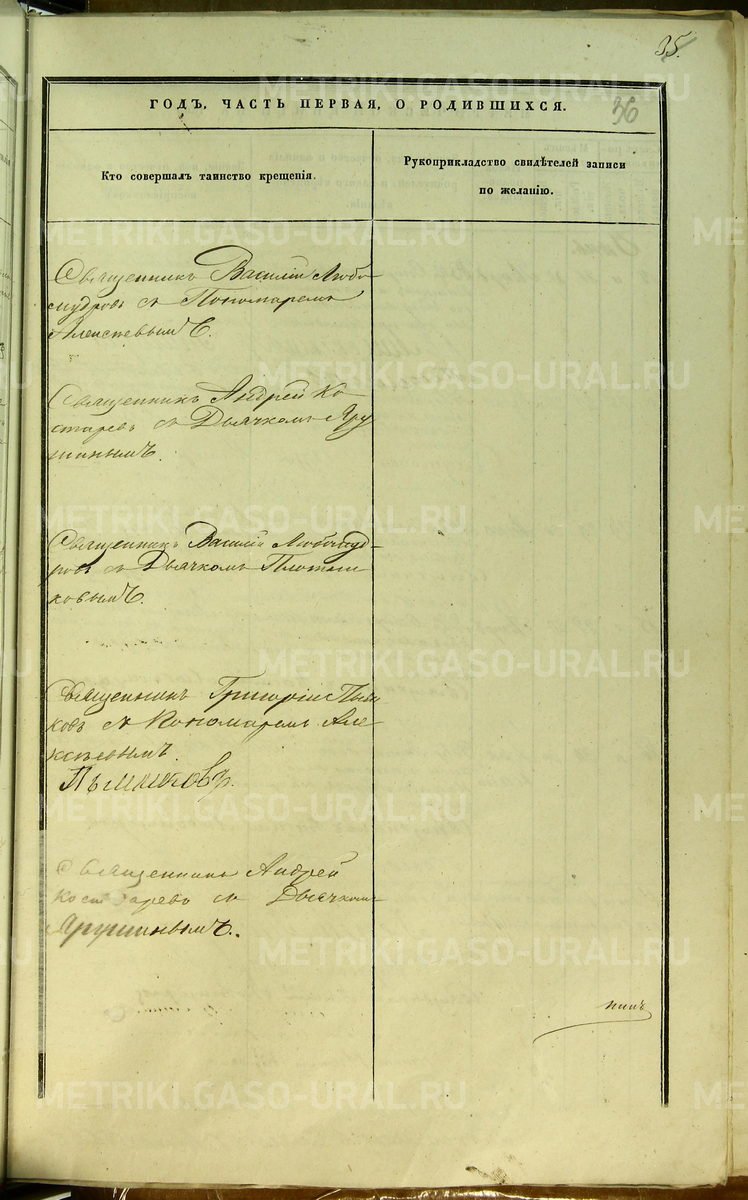 35.
36
ГОДЪ, ЧАСТЬ ПЕРВАЯ, О РОДИВШИХСЯ.
Кто совершалъ таинство крещенія.
Рукоприкладство свидѣтелей записи
по желанію.
Священникъ Василій Любо-
мудровъ съ Пономаремъ
Алексѣевымъ.
Священникъ Андрей Ко
старевъ съ Дьячкомъ Яру
шинымъ.
Священникъ Василій Любомуд-
ровъ съ Дьячкомъ Плотни
ковымъ.
Священникъ Григорій
ковъ съ Пономаремъ Але
ксѣевымъ.
Священникъ Андрей
Костаревъ съ Дьячкомъ
Ярушинымъ.
METRIKI.GASO-URAL.RU